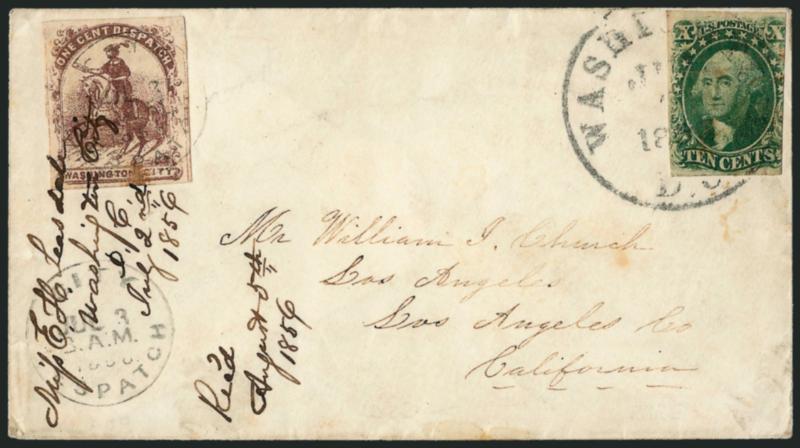 ONE CENT DESPATCH
WASHINGTON CITY
WASHI
18
D.C.
U.S. POSTAGE
X X
TEN CENTS
Mr William J. Church
Los Angeles
Los Angeles Co
California
Miss E. H. Leasdale
Washington City
D.C.
July 2nd
1856
Rec'd
August 5th
1856
CITY
JUL 3
8 A.M.
1856
DESPATCH